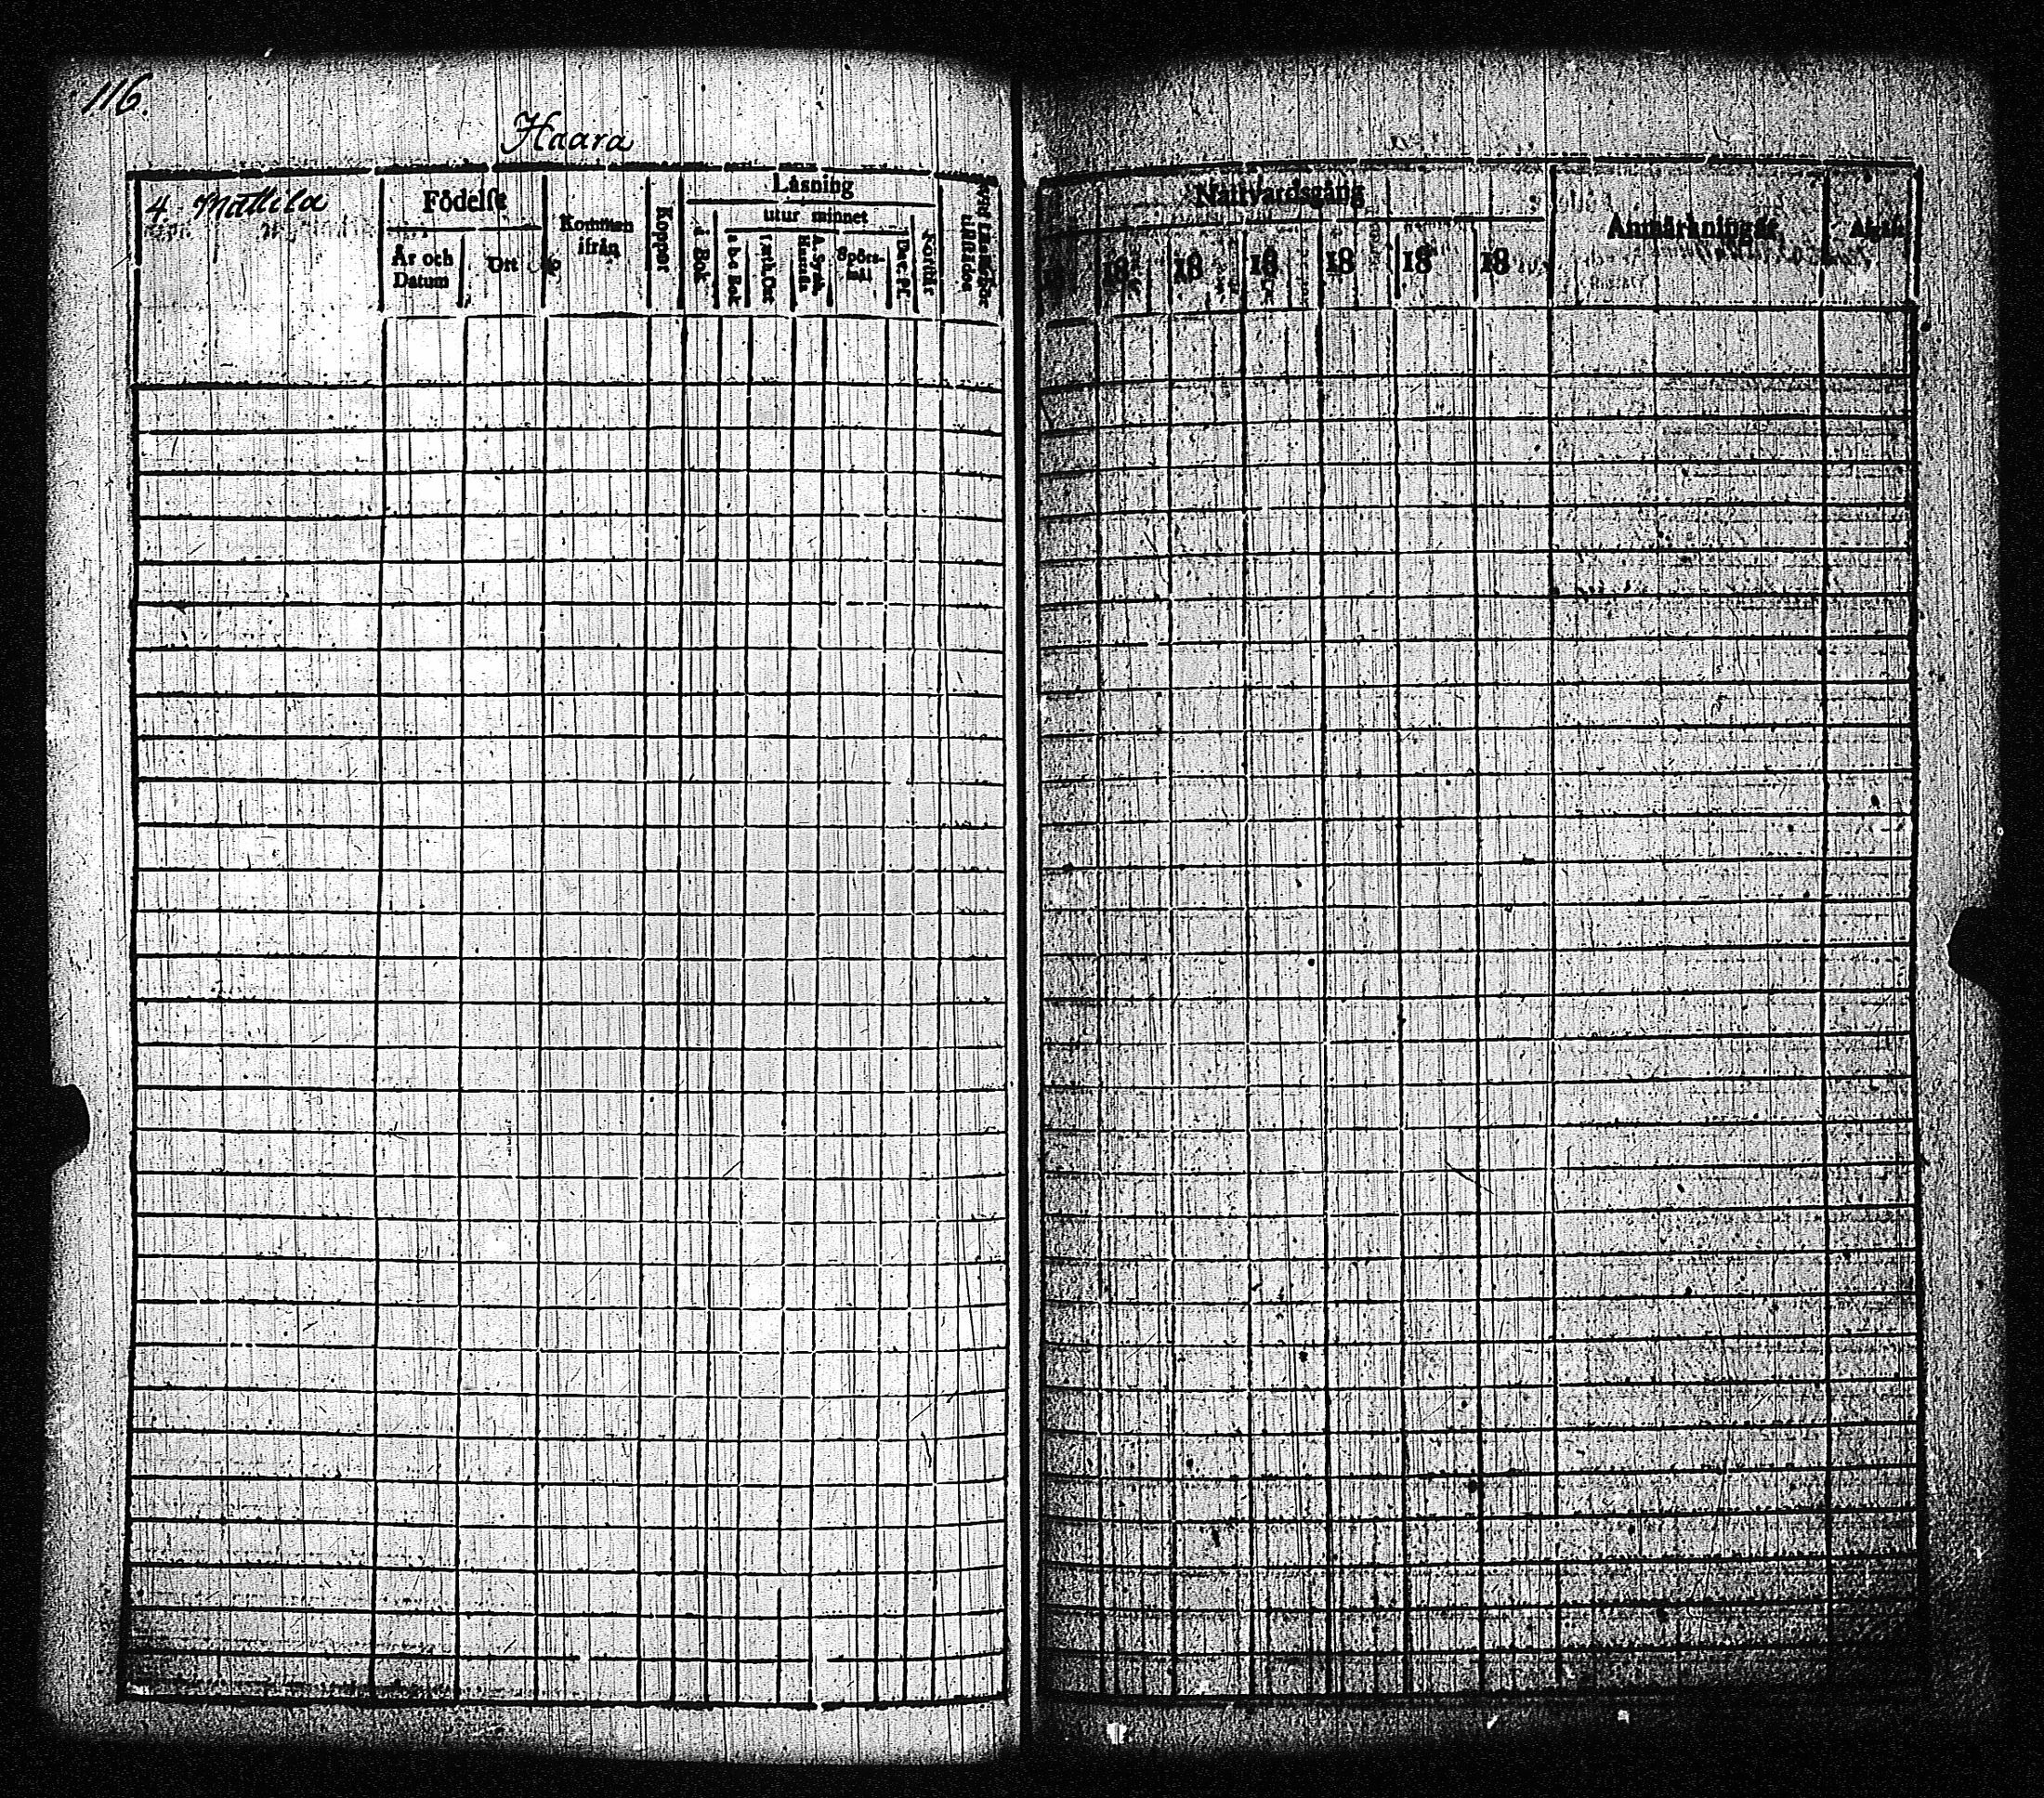 116.
Haara
4. Mattila
Födelse
År och Datum
Ort
Kommen ifrån
Koppor
Läsning
i Bok
utur minnet
a b c Bok
A. Symb.
Hustafla
Spörsmål
Dav. Ps.
Nattvardsgång
18
18
18
18
18
18
Anmärkningar